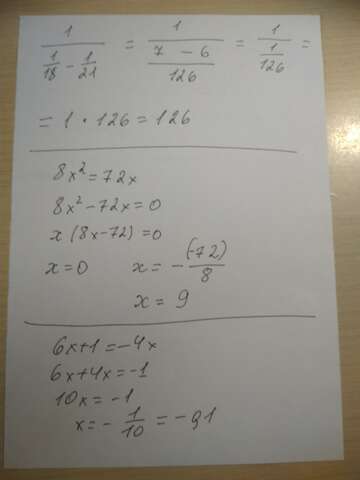 1/(1/18 - 1/21) = 1/((7 - 6)/126) = 1/(1/126) =
= 1 · 126 = 126
8x² = 72x
8x² - 72x = 0
x (8x - 72) = 0
x = 0    x = - (-72)/8
x = 9
6x + 1 = -4x
6x + 4x = -1
10x = -1
x = - 1/10 = -0,1